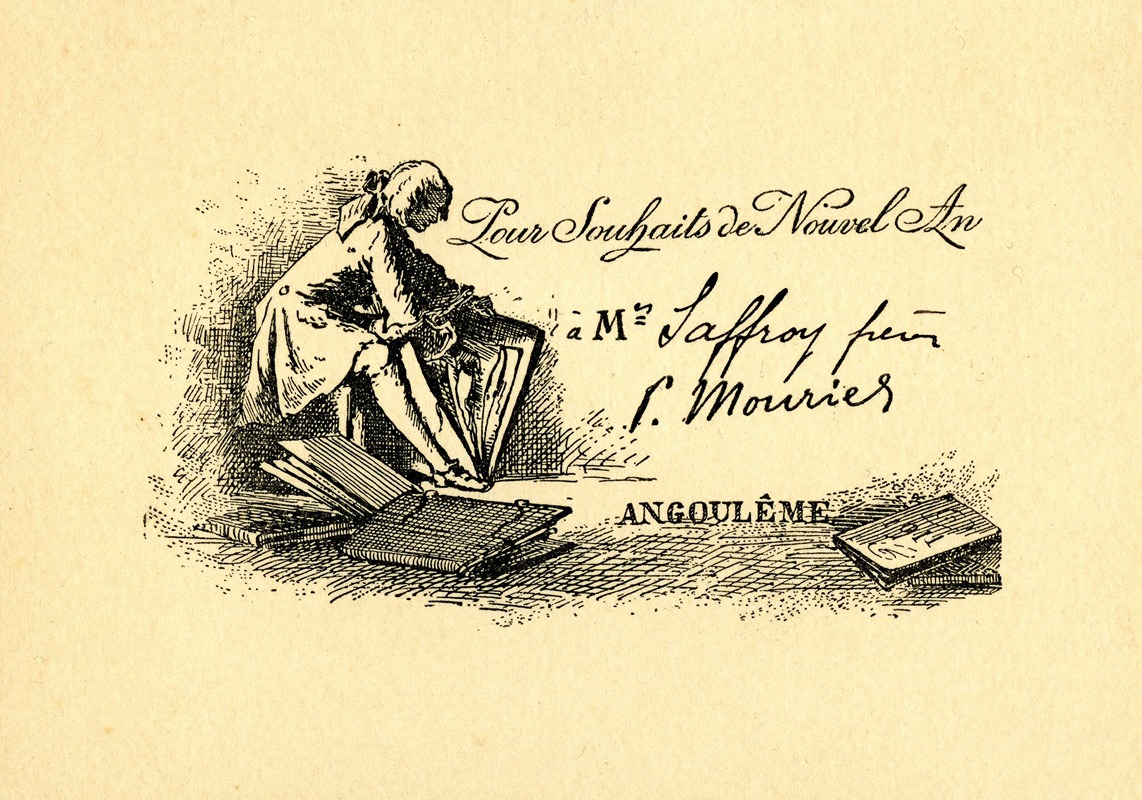 Pour Souhaits de Nouvel An
à Mr Saffroy
P. Mourier
ANGOULÊME